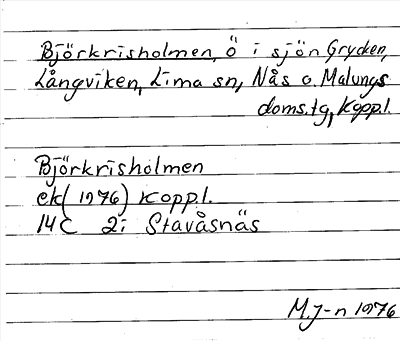 Björkrisholmen, ö i sjön Grycken,
Långviken, Lima sn, Nås o. Malungs
doms.tg, Kopp.l.
Björkrisholmen
ek (1976) Kopp.l.
14 C 2i Stavåsnäs
M.J-n 1976